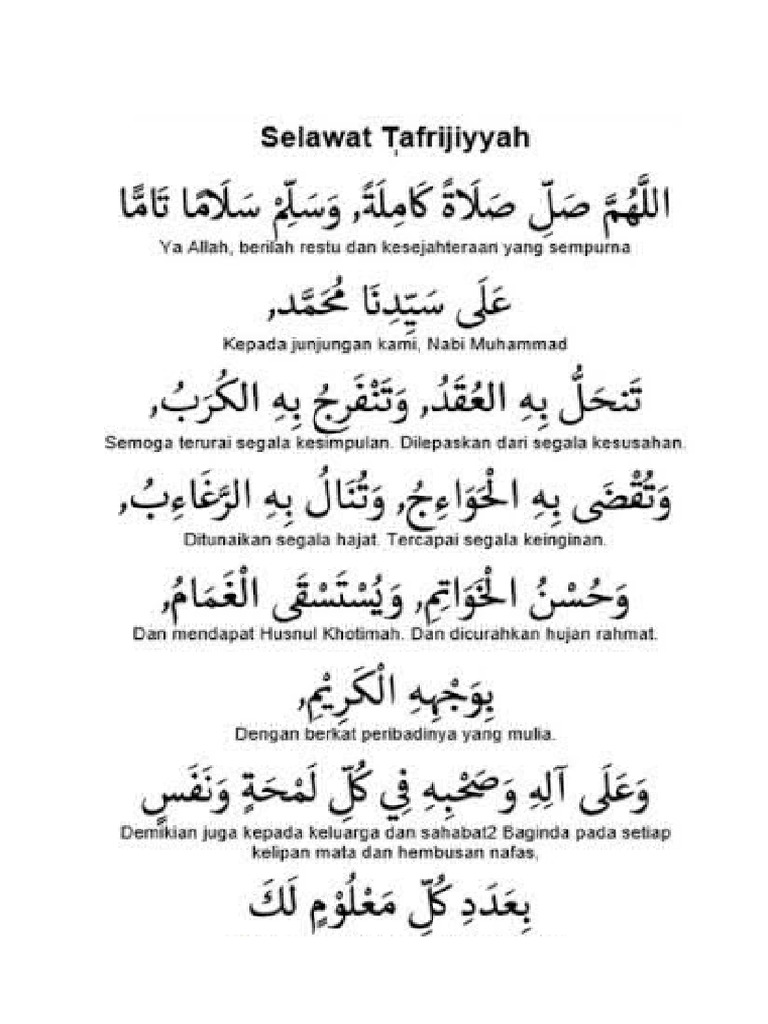 Selawat Tafrijiyyah
اللَّهُمَّ صَلِّ صَلَاةً كَامِلَةً, وَسَلِّمْ سَلَامًا تَامًّا
Ya Allah, berilah restu dan kesejahteraan yang sempurna
عَلَى سَيِّدِنَا مُحَمَّد,
Kepada junjungan kami, Nabi Muhammad
تَنحَلُّ بِهِ العُقَدُ, وَتَنْفَرِجُ بِهِ الكُرَبُ,
Semoga terurai segala kesimpulan. Dilepaskan dari segala kesusahan.
وَتُقْضَى بِهِ الْحَوَاءِجُ, وَتُنَالُ بِهِ الرَّغَاءِبُ,
Ditunaikan segala hajat. Tercapai segala keinginan.
وَحُسْنُ الْخَوَاتِمِ, وَيُسْتَسْقَى الْغَمَامُ,
Dan mendapat Husnul Khotimah. Dan dicurahkan hujan rahmat.
بِوَجْهِهِ الْكَرِيْمِ,
Dengan berkat peribadinya yang mulia.
وَعَلَى آلِهِ وَصَحْبِهِ فِي كُلِّ لَمْحَةٍ وَنَفَسٍ
Demikian juga kepada keluarga dan sahabat2 Baginda pada setiap
kelipan mata dan hembusan nafas,
بِعَدَدِ كُلِّ مَعْلُوْمٍ لَكَ